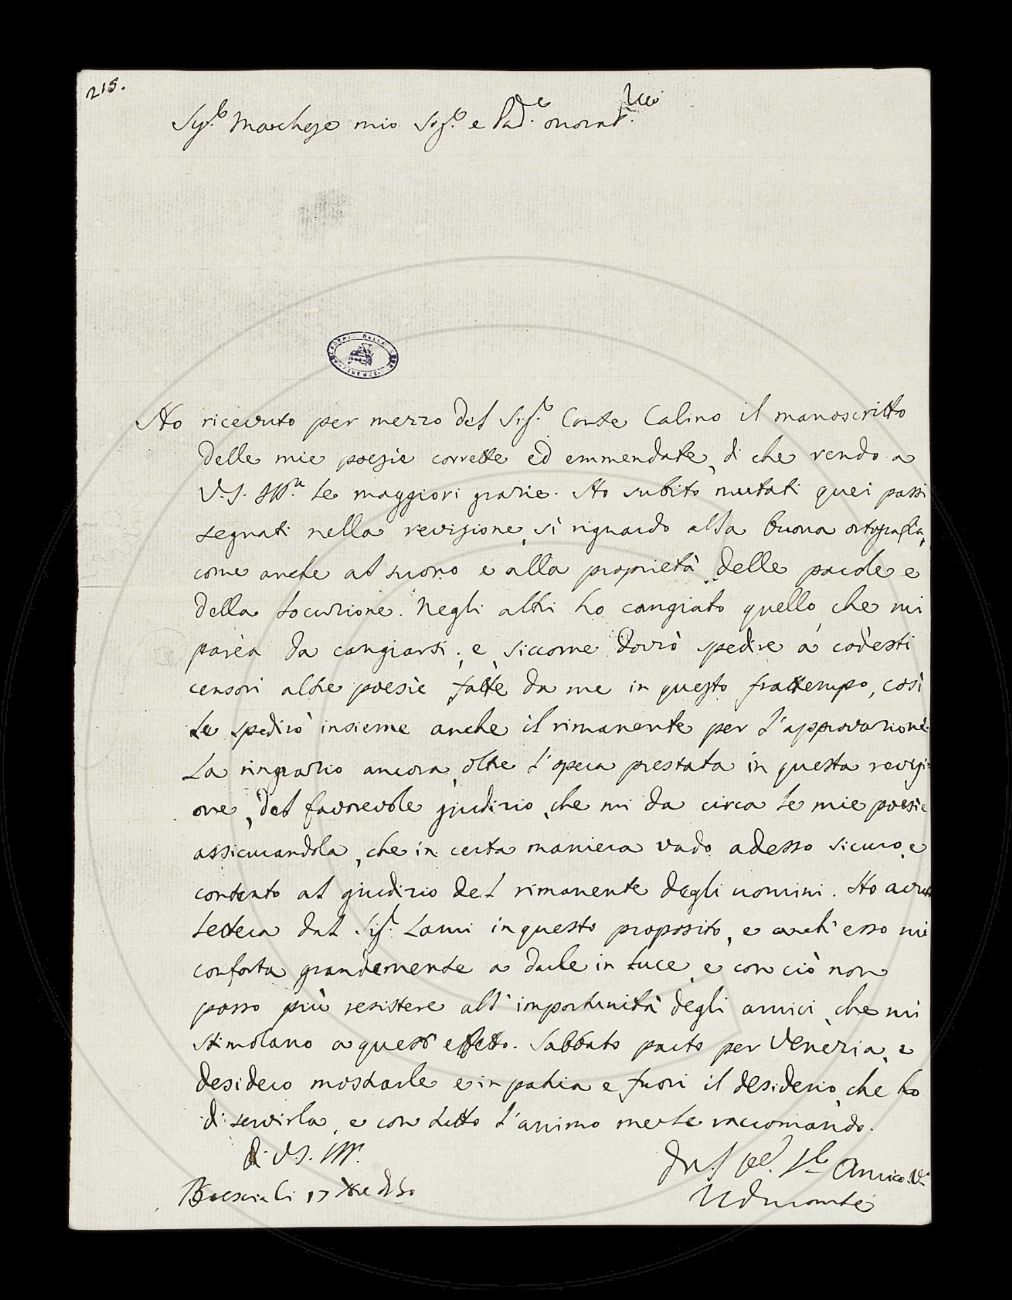 215.
Sig.r Marchese mio Sig.r e Pad.e onorat.
Ho ricevuto per mezzo del Sig.r Conte Calino il manoscritto
delle mie poesie corrette ed emmendate, di che rendo a
V.S. Ill.ma le maggiori grazie. Ho subito mutati quei passi
segnati nella revisione, sì riguardo alla buona ortografia,
come anche al suono e alla proprietà delle parole e
della locuzione. Negli altri ho cangiato quello, che mi
parea da cangiarsi; e siccome dovrò spedire a codesti
censori altre poesie fatte da me in questo frattempo, così
le spedirò insieme anche il rimanente per l'approvazione.
La ringrazio ancora, oltre l'opera prestata in questa revisi-
one, del favorevole giudizio, che mi da circa le mie poesie
assicurandola, che in certa maniera vado adesso sicuro, e
contento al giudizio del rimanente degli uomini. Ho avuto
lettera dal Sig.r Lami in questo proposito, e anch'esso mi
conforta grandemente a darle in luce, e con ciò non
posso più resistere all'importunità degli amici, che mi
stimolano a quest'effetto. Sabbato parto per Venezia, e
desidero mostrarle e in patria e fuori il desiderio, che ho
di servirla, e con tutto l'animo me le raccomando.
di V.S. Ill.
Brescia li 17 Xbre